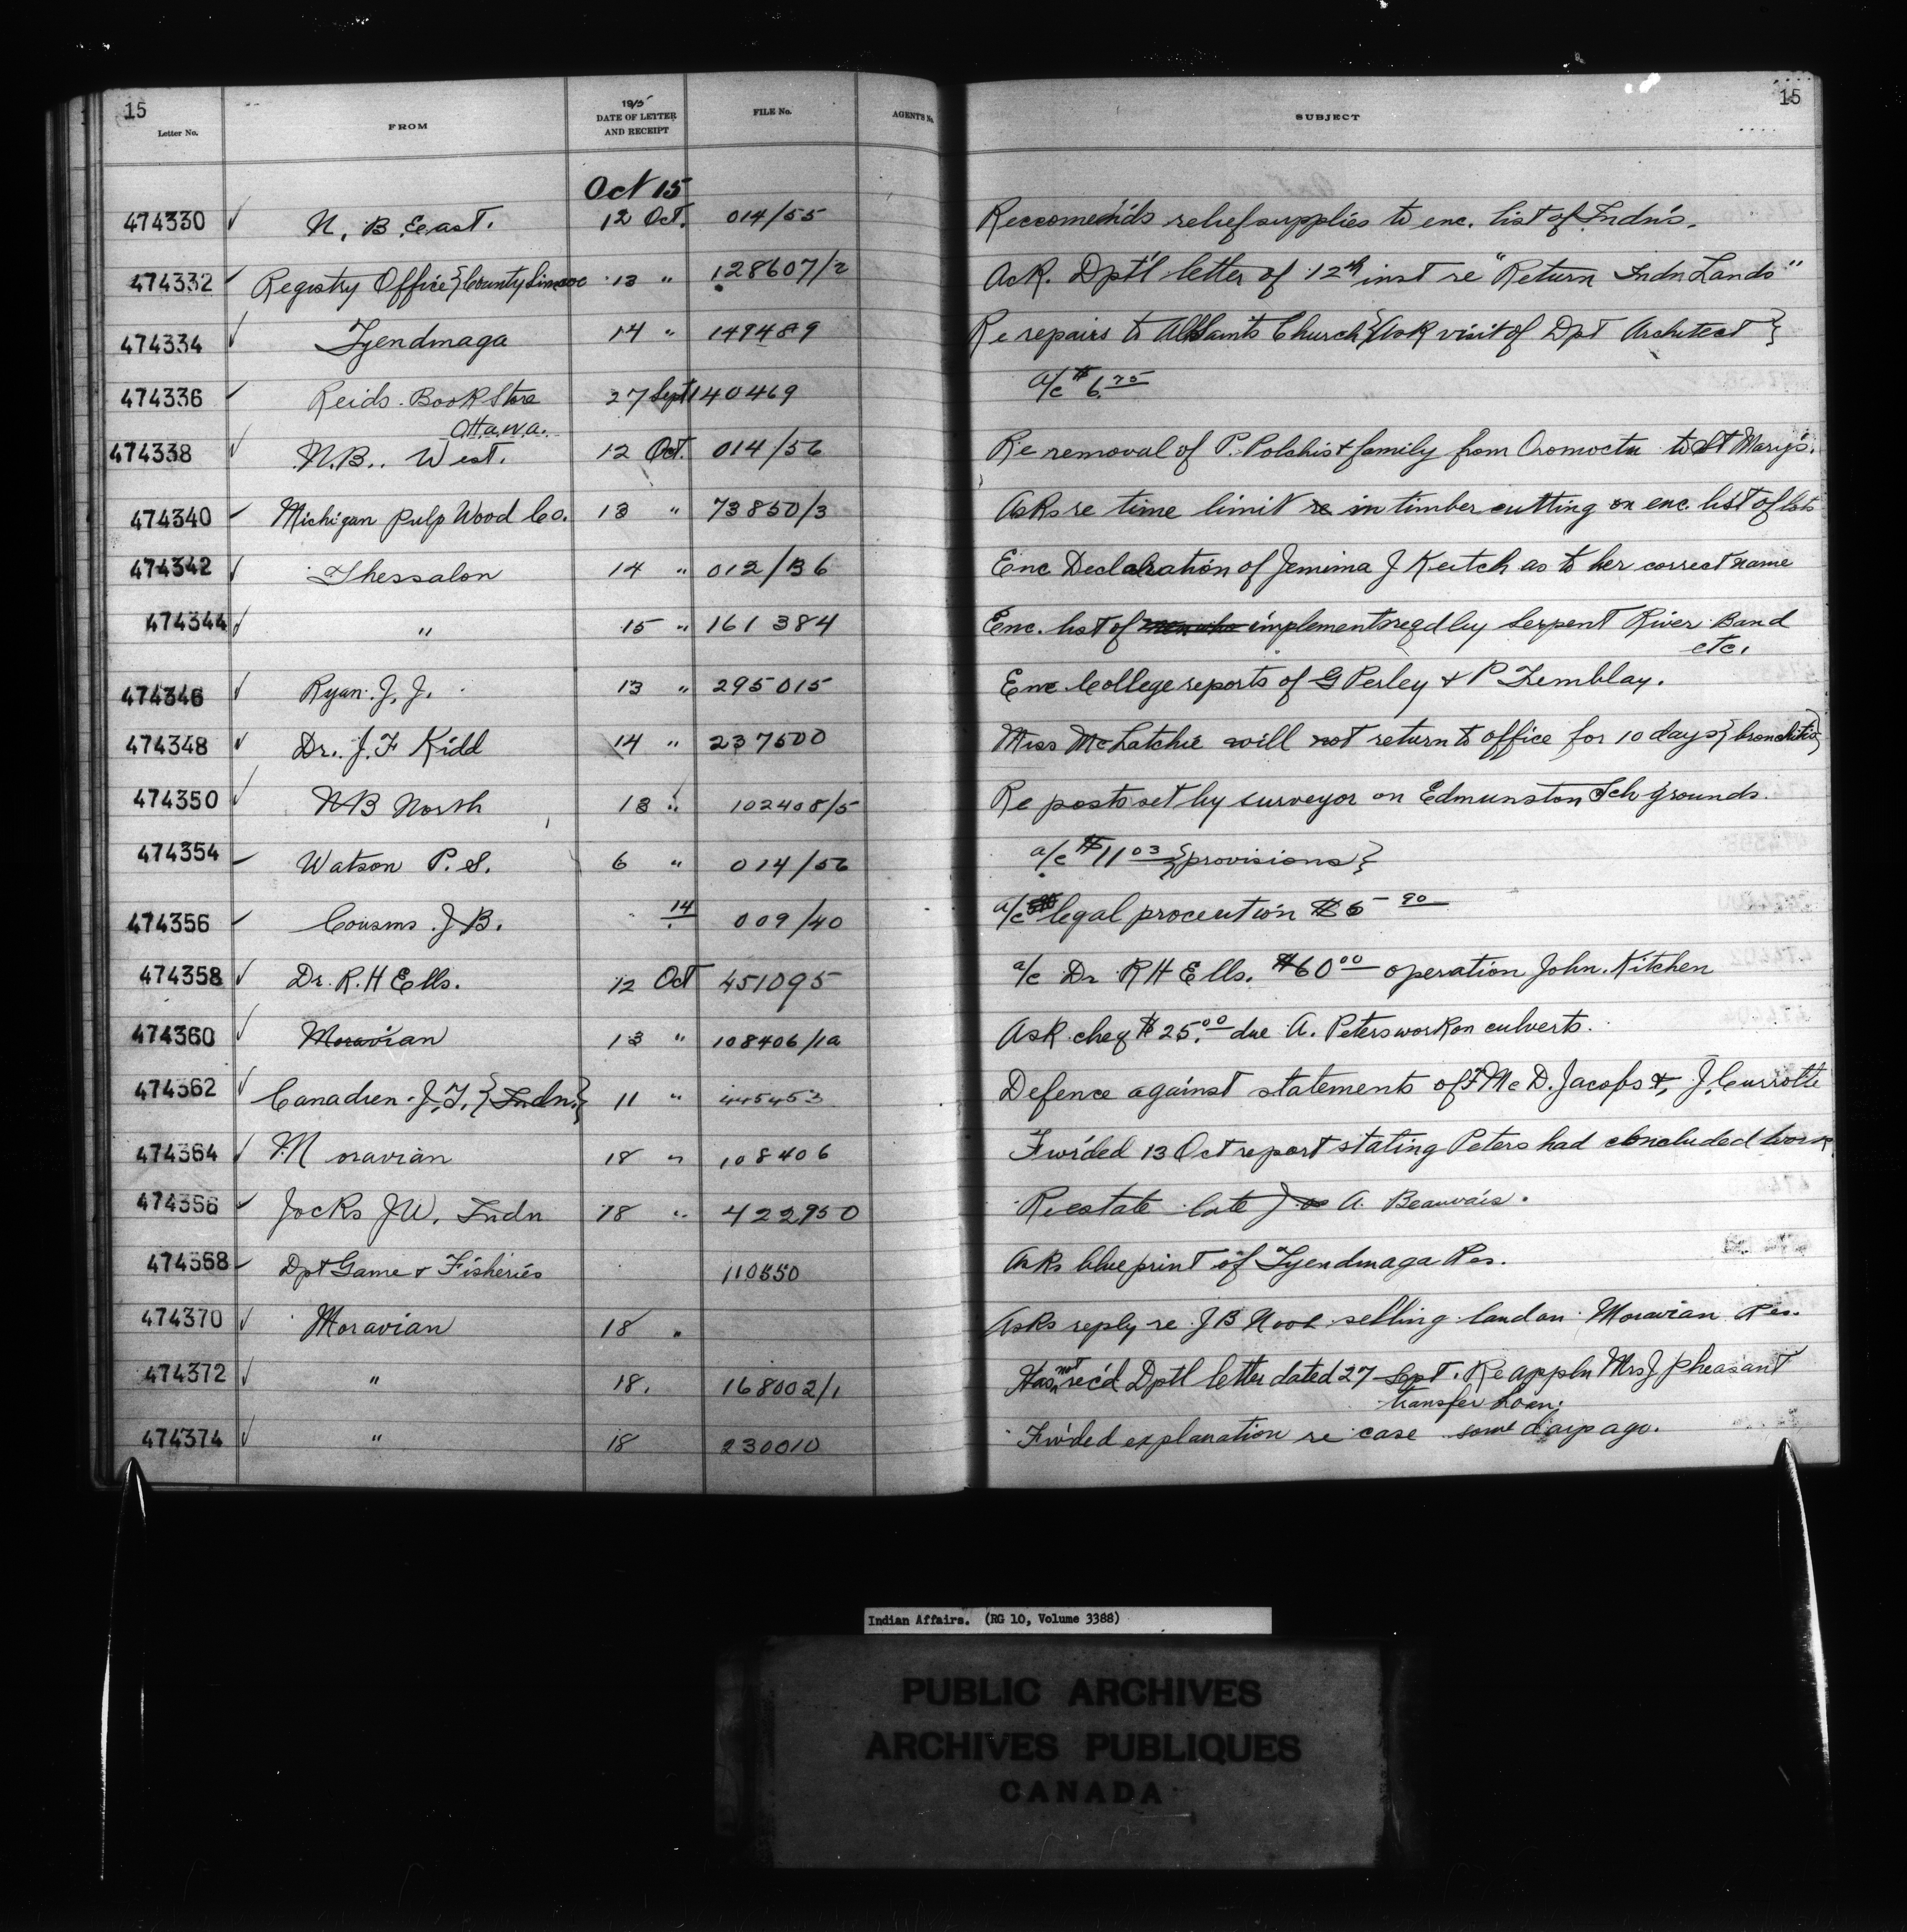 15
15
Letter No. FROM 1915 DATE OF LETTER AND RECEIPT FILE No. AGENT'S No. SUBJECT
Oct 15
474330 ✓ N. B. East. 12 Oct. 014/55 Reccomends relief supplies to enc. list of Indns.
474332 ✓ Registry Office {County Simcoe 13 " 128607/2 Ack. Dpt'l letter of 12th inst re "Return Indn Lands"
474334 ✓ Tyendinaga 14 " 149489 Re repairs to All Saints Church {Ask visit of Dpt Architect}
474336 ✓ Reids Book Store 27 Sept 140469 a/c $6.75
Ottawa.
474338 ✓ N.B. West. 12 Oct. 014/56 Re removal of P. Polchis & family from Oromocto to St Mary's.
474340 ✓ Michigan Pulp Wood Co. 13 " 73850/3 Asks re time limit re in timber cutting on enc. list of lots
474342 ✓ Thessalon 14 " 012/36 Enc Declaration of Jemima J Keitch as to her correct name
474344 ✓ " 15 " 161384 Enc. list of implements reqd by Serpent River Band
etc.
474346 ✓ Ryan J. J. 13 " 295015 Enc College reports of G Perley & P Tremblay.
474348 ✓ Dr. J. F Kidd 14 " 237500 Miss McLatchie will not return to office for 10 days {bronchitis}
474350 ✓ NB North 13 " 102408/5 Re posts set by surveyor on Edmunston Sch grounds.
474354 ✓ Watson P. S. 6 " 014/56 a/c $11.03 {provisions}
474356 ✓ Cousins J B. 14 009/40 a/c legal procecution $5.90
474358 ✓ Dr. R. H Ells. 12 Oct 451095 a/c Dr R H Ells. $60.00 operation John Kitchen
474360 ✓ Moravian 13 " 108406/1a Ask cheq $25.00 due A. Peters work on culverts.
474362 ✓ Canadien J. T. {Indn.} 11 " 445453 Defence against statements of F McD. Jacobs & J. Currotte
474364 ✓ Moravian 18 " 108406 Fwrded 13 Oct report stating Peters had concluded work
474366 ✓ Jocks J W. Indn 18 " 422950 Re estate late A. Beauvais.
474368 ✓ Dpt Game & Fisheries 110550 Asks blue print of Tyendinaga Res.
474370 ✓ Moravian 18 " Asks reply re J B Noah selling land on Moravian Res.
474372 ✓ " 18. 168002/1 Has not rec'd Dptl letter dated 27 Sept. Re appln Mrs J Pheasant
transfer Loan.
474374 ✓ " 18 230010 Fwrded explanation re case some days ago.
Indian Affairs. (RG 10, Volume 3388)
PUBLIC ARCHIVES
ARCHIVES PUBLIQUES
CANADA